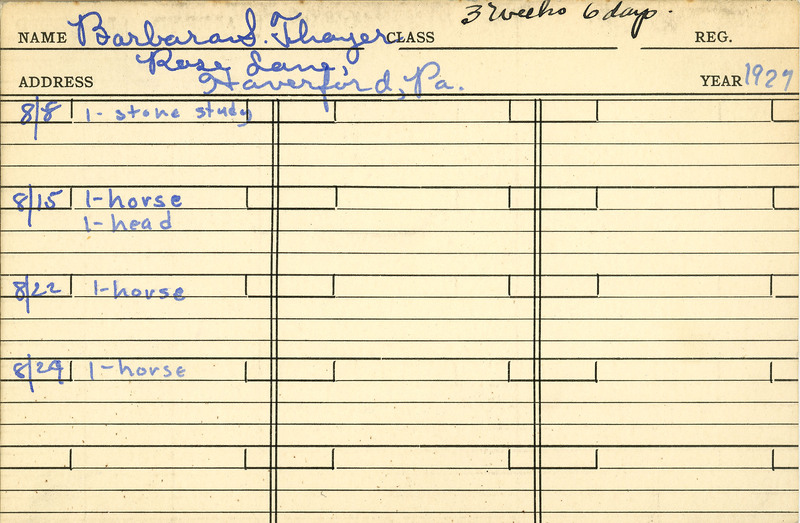 3 weeks 6 days.
NAME Barbara S. Thayer CLASS REG.
Rose Lane,
ADDRESS Haverford, Pa. YEAR 1927
8/8 1- stone study
8/15 1-horse
1-head
8/22 1-horse
8/29 1-horse